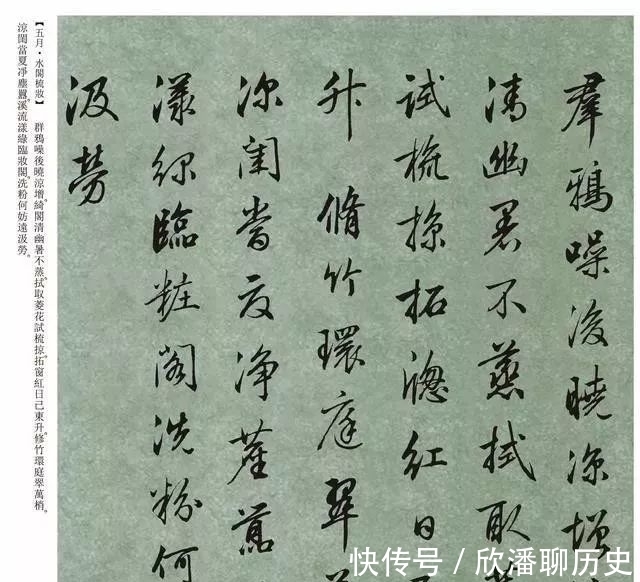 羣鴉噪後曉涼增
清幽暑不蒸拭取
試梳掠拓窻紅日
升 脩竹環庭翠
涼閨當夏净塵囂
漾綠臨粧閣洗粉何
汲勞
【五月·水閣梳妝】 群鴉噪後曉涼增。綺閣清幽暑不蒸。拭取菱花試梳掠。拓窗紅日已東升。修竹環庭翠萬梢。
涼閨當夏凈塵囂。溪流漾綠臨妝閣。洗粉何妨遠汲勞。
快传号 / 欣潘聊历史